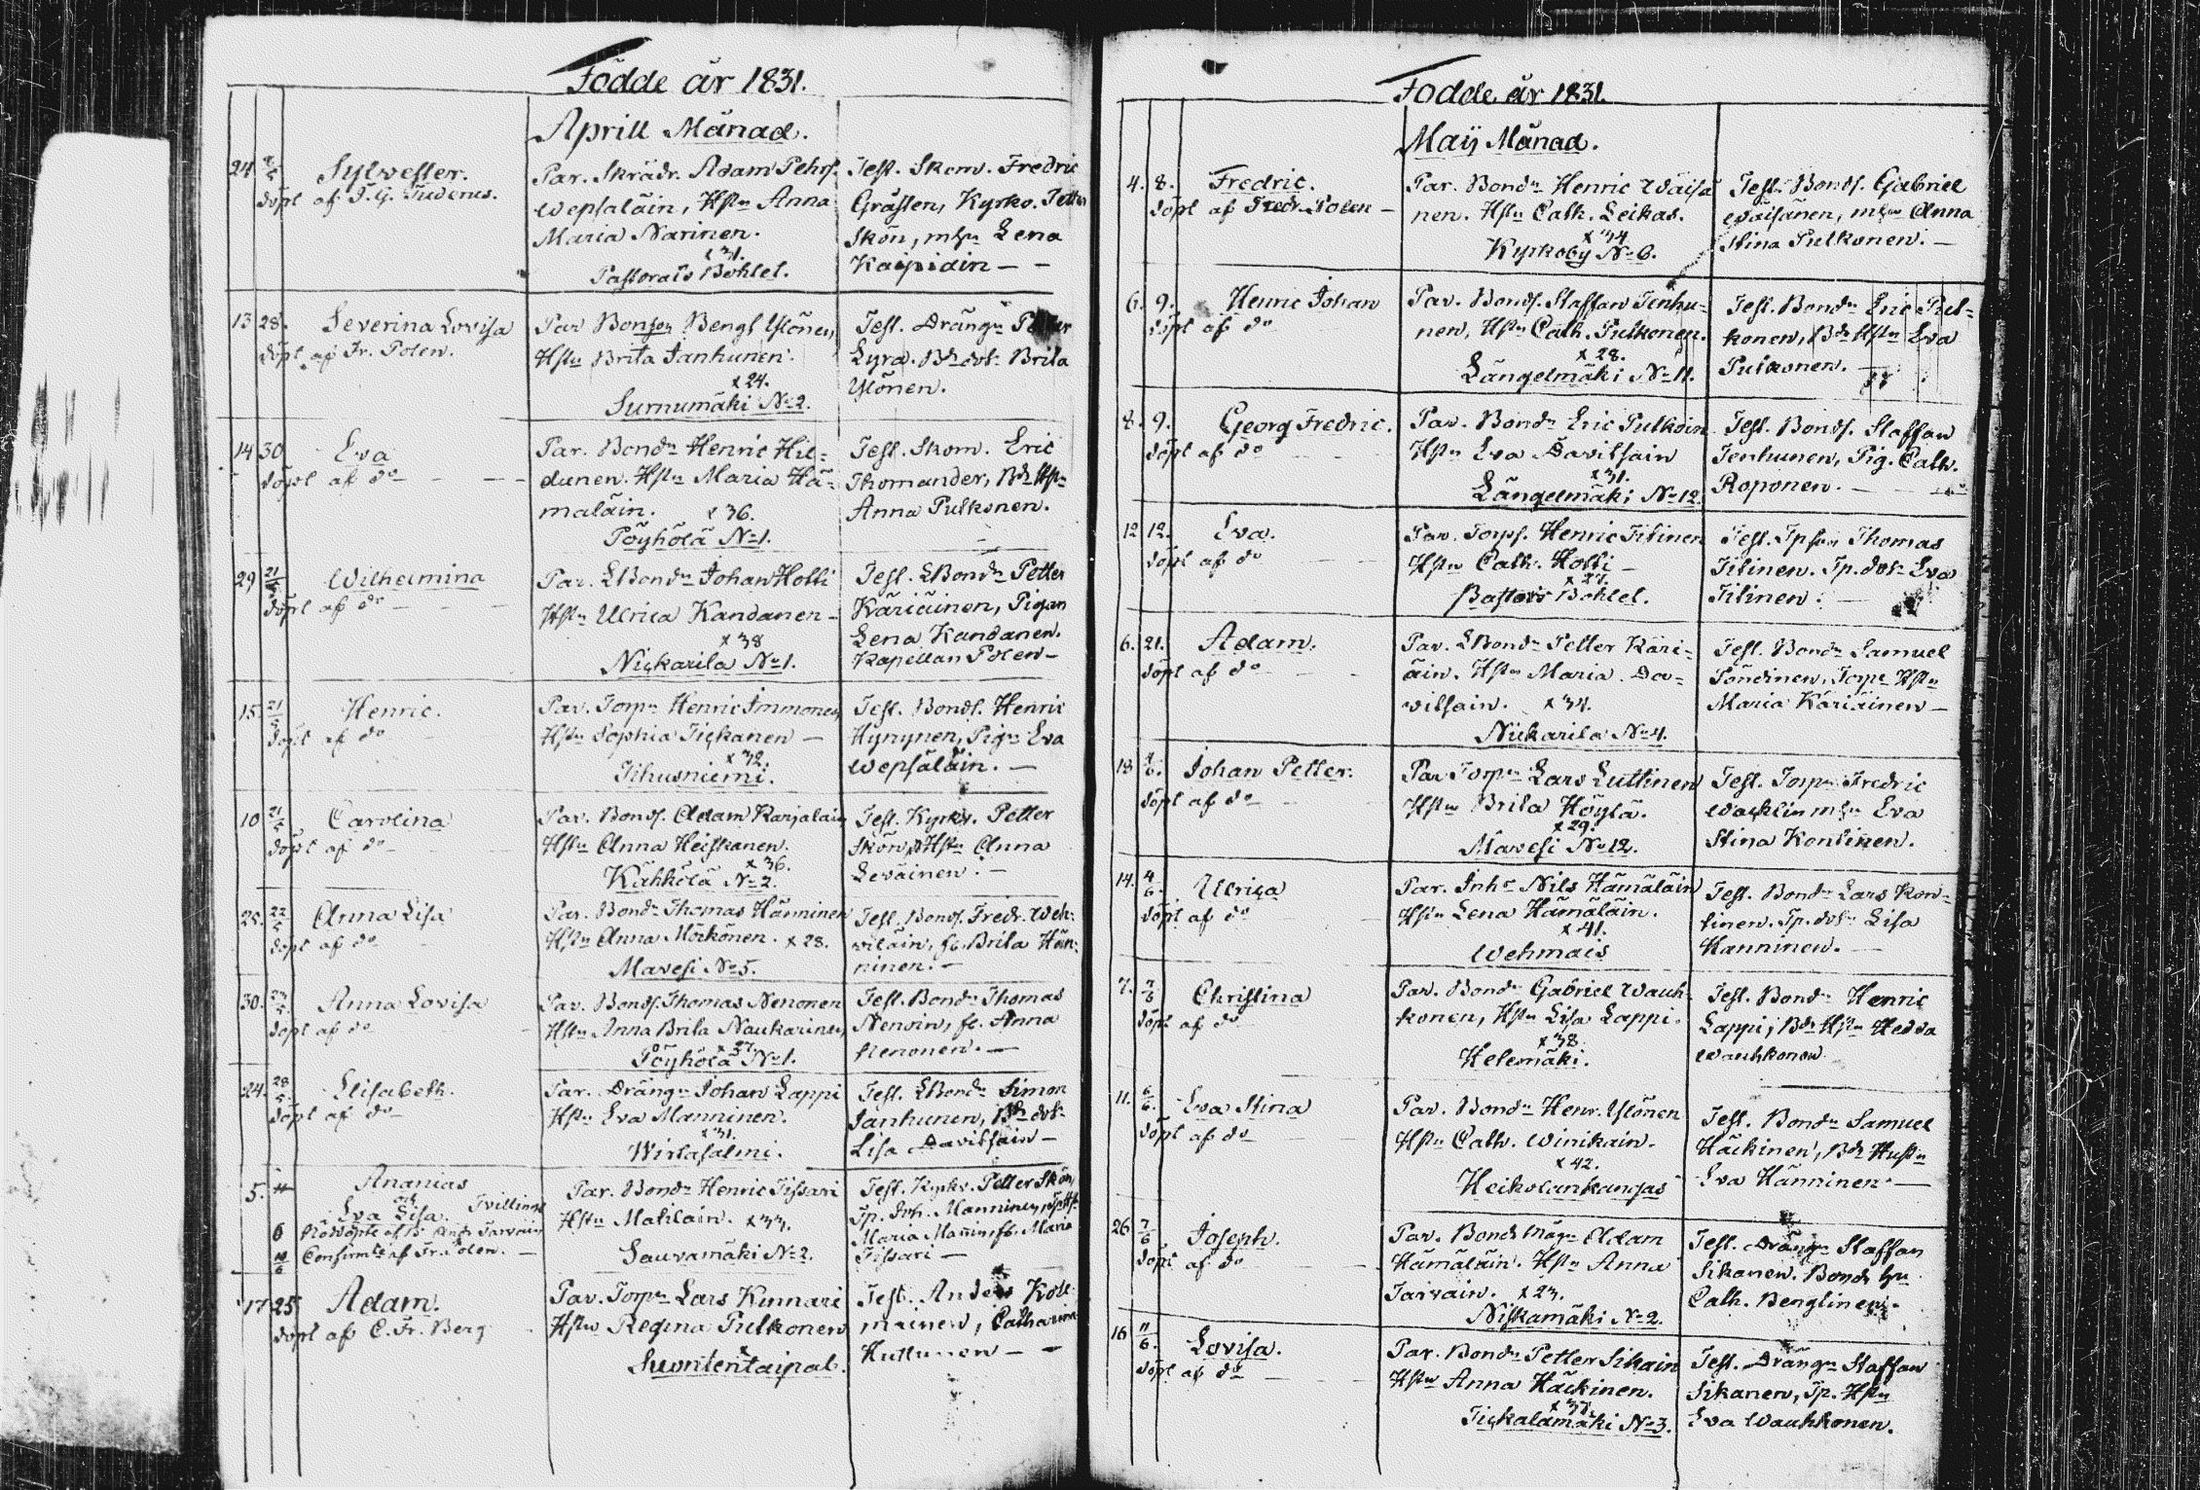 Födde år 1831.
Aprill Månad.
24 2/5 Sylvester.
döpt af J. G. Tuderus.
Par. Skrädr. Adam Pehrs.
Wepsäläin, Hstu Anna
Maria Narinen.
x 31.
Pastorats Bohlet.
Test. Skom. Fredric
Grästen, Kyrko. Petter
Skön, mhu Lena
Kaipidin — —
13 28. Severina Lovisa
döpt af Fr. Polen.
Par Bonson Bengt Ylönen,
Hstu Brita Janhunen.
x 24.
Surnumäki No 2.
Test. Drängn Petter
Lyra. Bd dotr Brita
Ylönen.
14 30 Eva
döpt af do
Par. Bondn Henric Hil=
dunen. Hstu Maria Hä=
mäläin. x 36.
Pöyhölä No 1.
Test. Skom. Eric
Thomander, Bd Hstu
Anna Pulkonen.
29 21/5 Wilhelmina
döpt af do
Par. LBondn Johan Holli
Hstu Ulrica Kandanen —
x 38
Nickarila No 1.
Test. LBondn Petter
Käriäinen, Pigan
Lena Kandanen.
Kapellan Polen —
15. 21/5 Henric.
döpt af do
Par. Torpn Henric Immonen,
Hstu Sophia Tickanen —
x 32.
Tihusniemi.
Test. Bonds. Henric
Hynynen, Pign Eva
Wepsäläin. —
10 21/5 Carolina
döpt af do
Par. Bonds. Adam Karjalain,
Hstu Anna Heiskanen.
x 36.
Kähkölä No 2.
Test. Kyrkv. Petter
Skön, Hstu Anna
Leväinen. —
25. 22/5 Anna Lisa
döpt af do
Par. Bondn Thomas Hänninen
Hstu Anna Mörkönen. x 28.
Mavesi No 5.
Test. Bonds. Fredr. Weh=
viläin, fl. Brita Hän=
ninen. —
30. 24/5 Anna Lovisa
döpt af do
Par. Bonds. Thomas Nenonen
Hstu Anna Brita Naukarinen,
x 27.
Pöyhölä No 1.
Test. Bondn Thomas
Nenoin, fl. Anna
Nenonen. —
24. 28/5 Elisabeth.
döpt af do
Par. Drängn Johan Lappi
Hstu Eva Manninen.
x 31.
Wirtasalmi.
Test. LBondn Simon
Janhunen, Bd dotr
Lisa Davitsain —
5. Ananias
och Tvillinar
Eva Lisa.
6 Nöddöpte af Andr. Tarvain
10/6 Confirmte af Fr. Polen. —
Par. Bondn Henric Tissari
Hstu Mat. Lain. x 33.
Sauvamäki No 2.
Test. Kyrkv. Petter Skön,
Tp. Joh. Manninen,
Maria Mannin fl. Maria
Tissari —
17 25 Adam.
döpt af C. Fr. Berg
Par. Torpn Lars Kinnari
Hstu Regina Pulkonen
Suontentaipal.
Test. Anders Kole=
mainen, Catharina
Huttunen — —
Födde år 1831.
Maij Månad.
4. 8. Fredric.
döpt af Fredr. Polen —
Par. Bondn Henric Wäisä
nen. Hstu Cath. Leikas.
x 34
Kyrkoby No 6.
Test. Bonds. Gabriel
Wäisänen, mhu Anna
Stina Pulkonen. —
6. 9. Henric Johan
döpt af do
Par. Bonds. Staffan Tenhu=
nen, Hstu Cath. Pulkonen.
x 28.
Längelmäki No 11.
Test. Bondn Eric Pul=
konen, Bd Hstu Eva
Pulkonen.
8. 9. Georg Fredric.
döpt af do
Par. Bondn Eric Pulkoin
Hstu Eva Davitsain
x 31.
Längelmäki No 12.
Test. Bonds. Staffan
Tenhunen, Pig. Cath.
Roponen. —
12 12. Eva.
döpt af do
Par. Torps. Henric Titinen
Hstu Cath. Holli —
x 27.
Pastors Bohlet.
Test. Tpson Thomas
Titinen. Tp. dotr Eva
Titinen. —
6. 21. Adam.
döpt af do
Par. LBondn Petter Käri=
äin. Hstu Maria Da=
vitsain. x 34.
Nickarila No 4.
Test. Bondn Samuel
Pöndinen, Torpe Hstu
Maria Käriäinen —
18 4/6. Johan Petter.
döpt af do
Par Torpn Lars Luttinen
Hstu Brita Höylä.
x 29.
Mavesi No 12.
Test. Torpn Fredric
Wacklin mhu Eva
Stina Kontinen.
14. 4/6. Ulrica
döpt af do
Par. Inhs Nils Hämäläin
Hstu Lena Hämäläin.
x 41.
Wehmais
Test. Bondn Lars Kon=
tinen. Tp. dotr Lisa
Hanninen. —
7. 5/6 Christina
döpt af do
Par. Bondn Gabriel Wauh
konen, Hstu Lisa Lappi.
x 38.
Hetemäki.
Test. Bondn Henric
Lappi, Bds Hstu Hedda
Wauhkonen
11. 6/6. Eva Stina
döpt af do
Par. Bondn Henr. Ylönen
Hstu Cath. Winikain.
x 42.
Heikolankangas
Test. Bondn Samuel
Häckinen, Bd Hustu
Eva Hänninen —
26. 7/6 Joseph.
döpt af do
Par. Bonds mågn Adam
Hämäläin. Hstu Anna
Tarvain. x 23.
Niskamäki No 2.
Test. Drängn Staffan
Sikanen. Bonds hu
Cath. Benglinen.
16 11/6. Lovisa.
döpt af do
Par. Bondn Petter Sikain
Hstu Anna Häckinen.
x 37.
Tickalamäki No 3.
Test. Drängn Staffan
Sikanen, Tp. Hstu
Eva Wauhkonen.